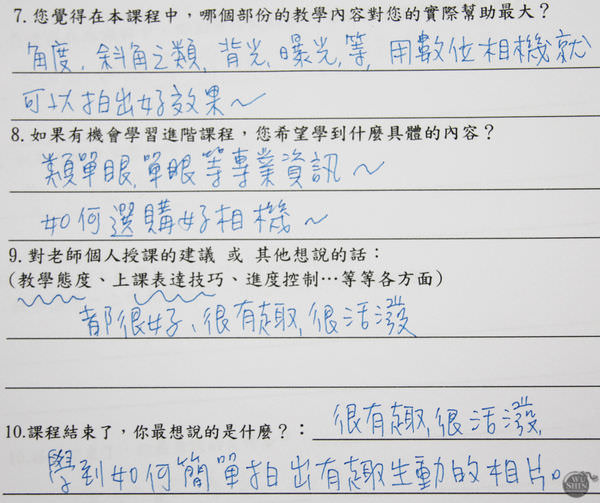 7.您覺得在本課程中，哪個部份的教學內容對您的實際幫助最大？
角度，斜角之類，背光，曝光，等，用數位相機就
可以拍出好效果～
8.如果有機會學習進階課程，您希望學到什麼具體的內容？
類單眼，單眼等專業資訊～
如何選購好相機～
9.對老師個人授課的建議 或 其他想說的話：
(教學態度、上課表達技巧、進度控制…等等各方面)
都很好、很有趣，很活潑
10.課程結束了，你最想說的是什麼？：很有趣，很活潑，
學到如何簡單拍出有趣生動的相片。
WU SHIN